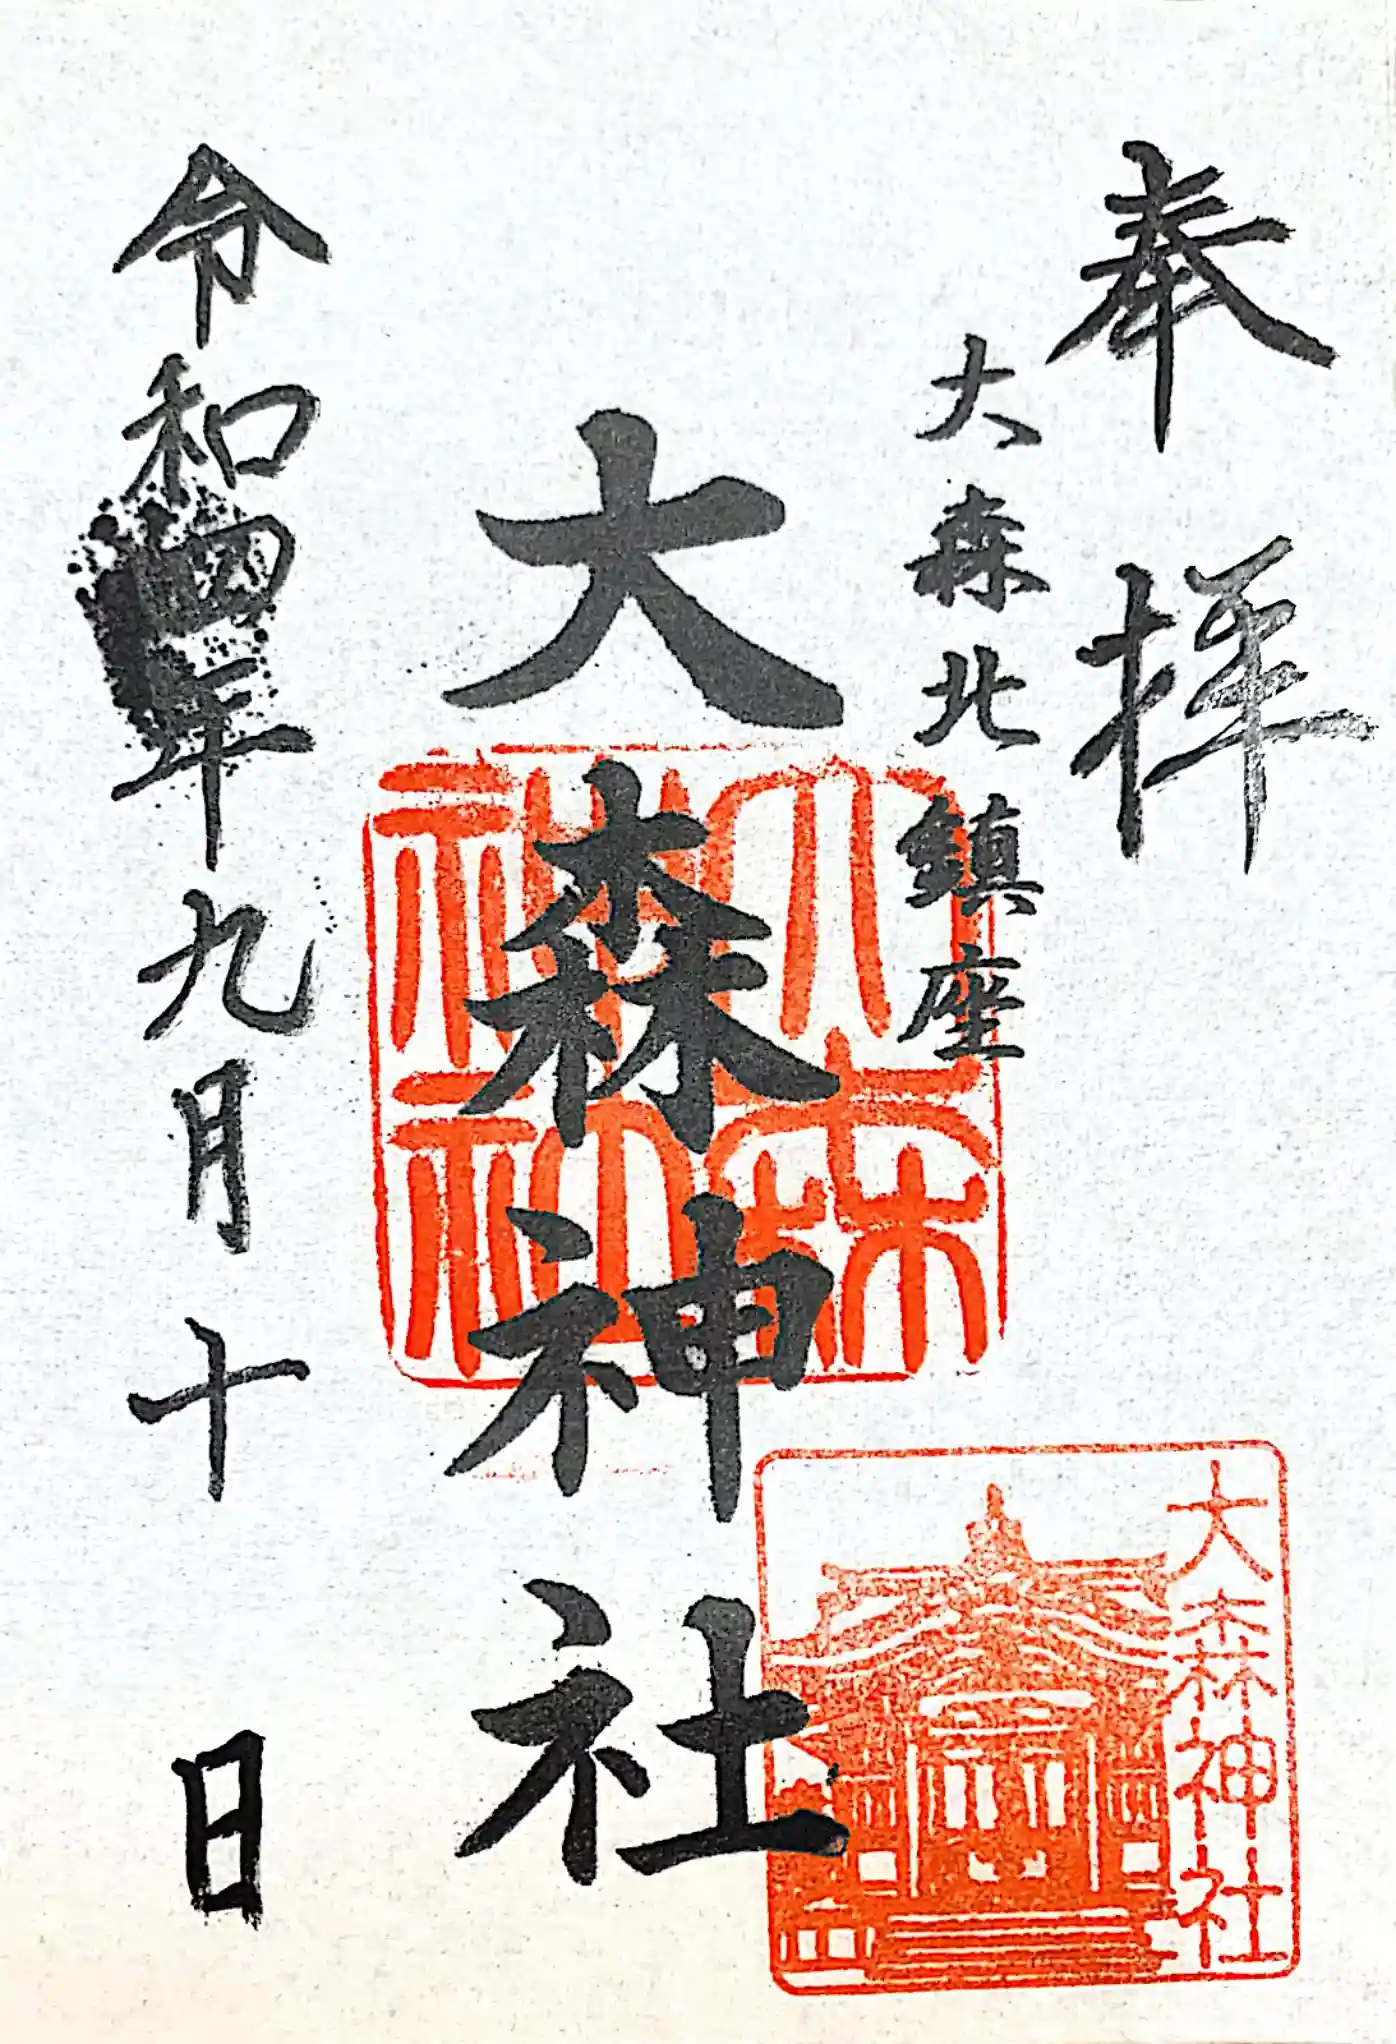 奉拝
大森北鎮座
大森神社
令和四年九月十日
大森神社
大森神社